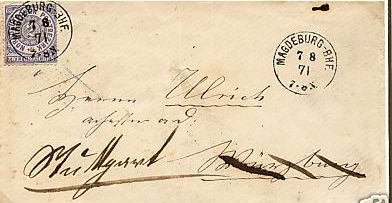 MAGDEBURG-BHF
7 8
71
7-8N.
ZWEI GROSCHEN
MAGDEBURG-BHF.
7 8
71
7-8N.
Herrn Ulrich
Stuttgart Würzburg